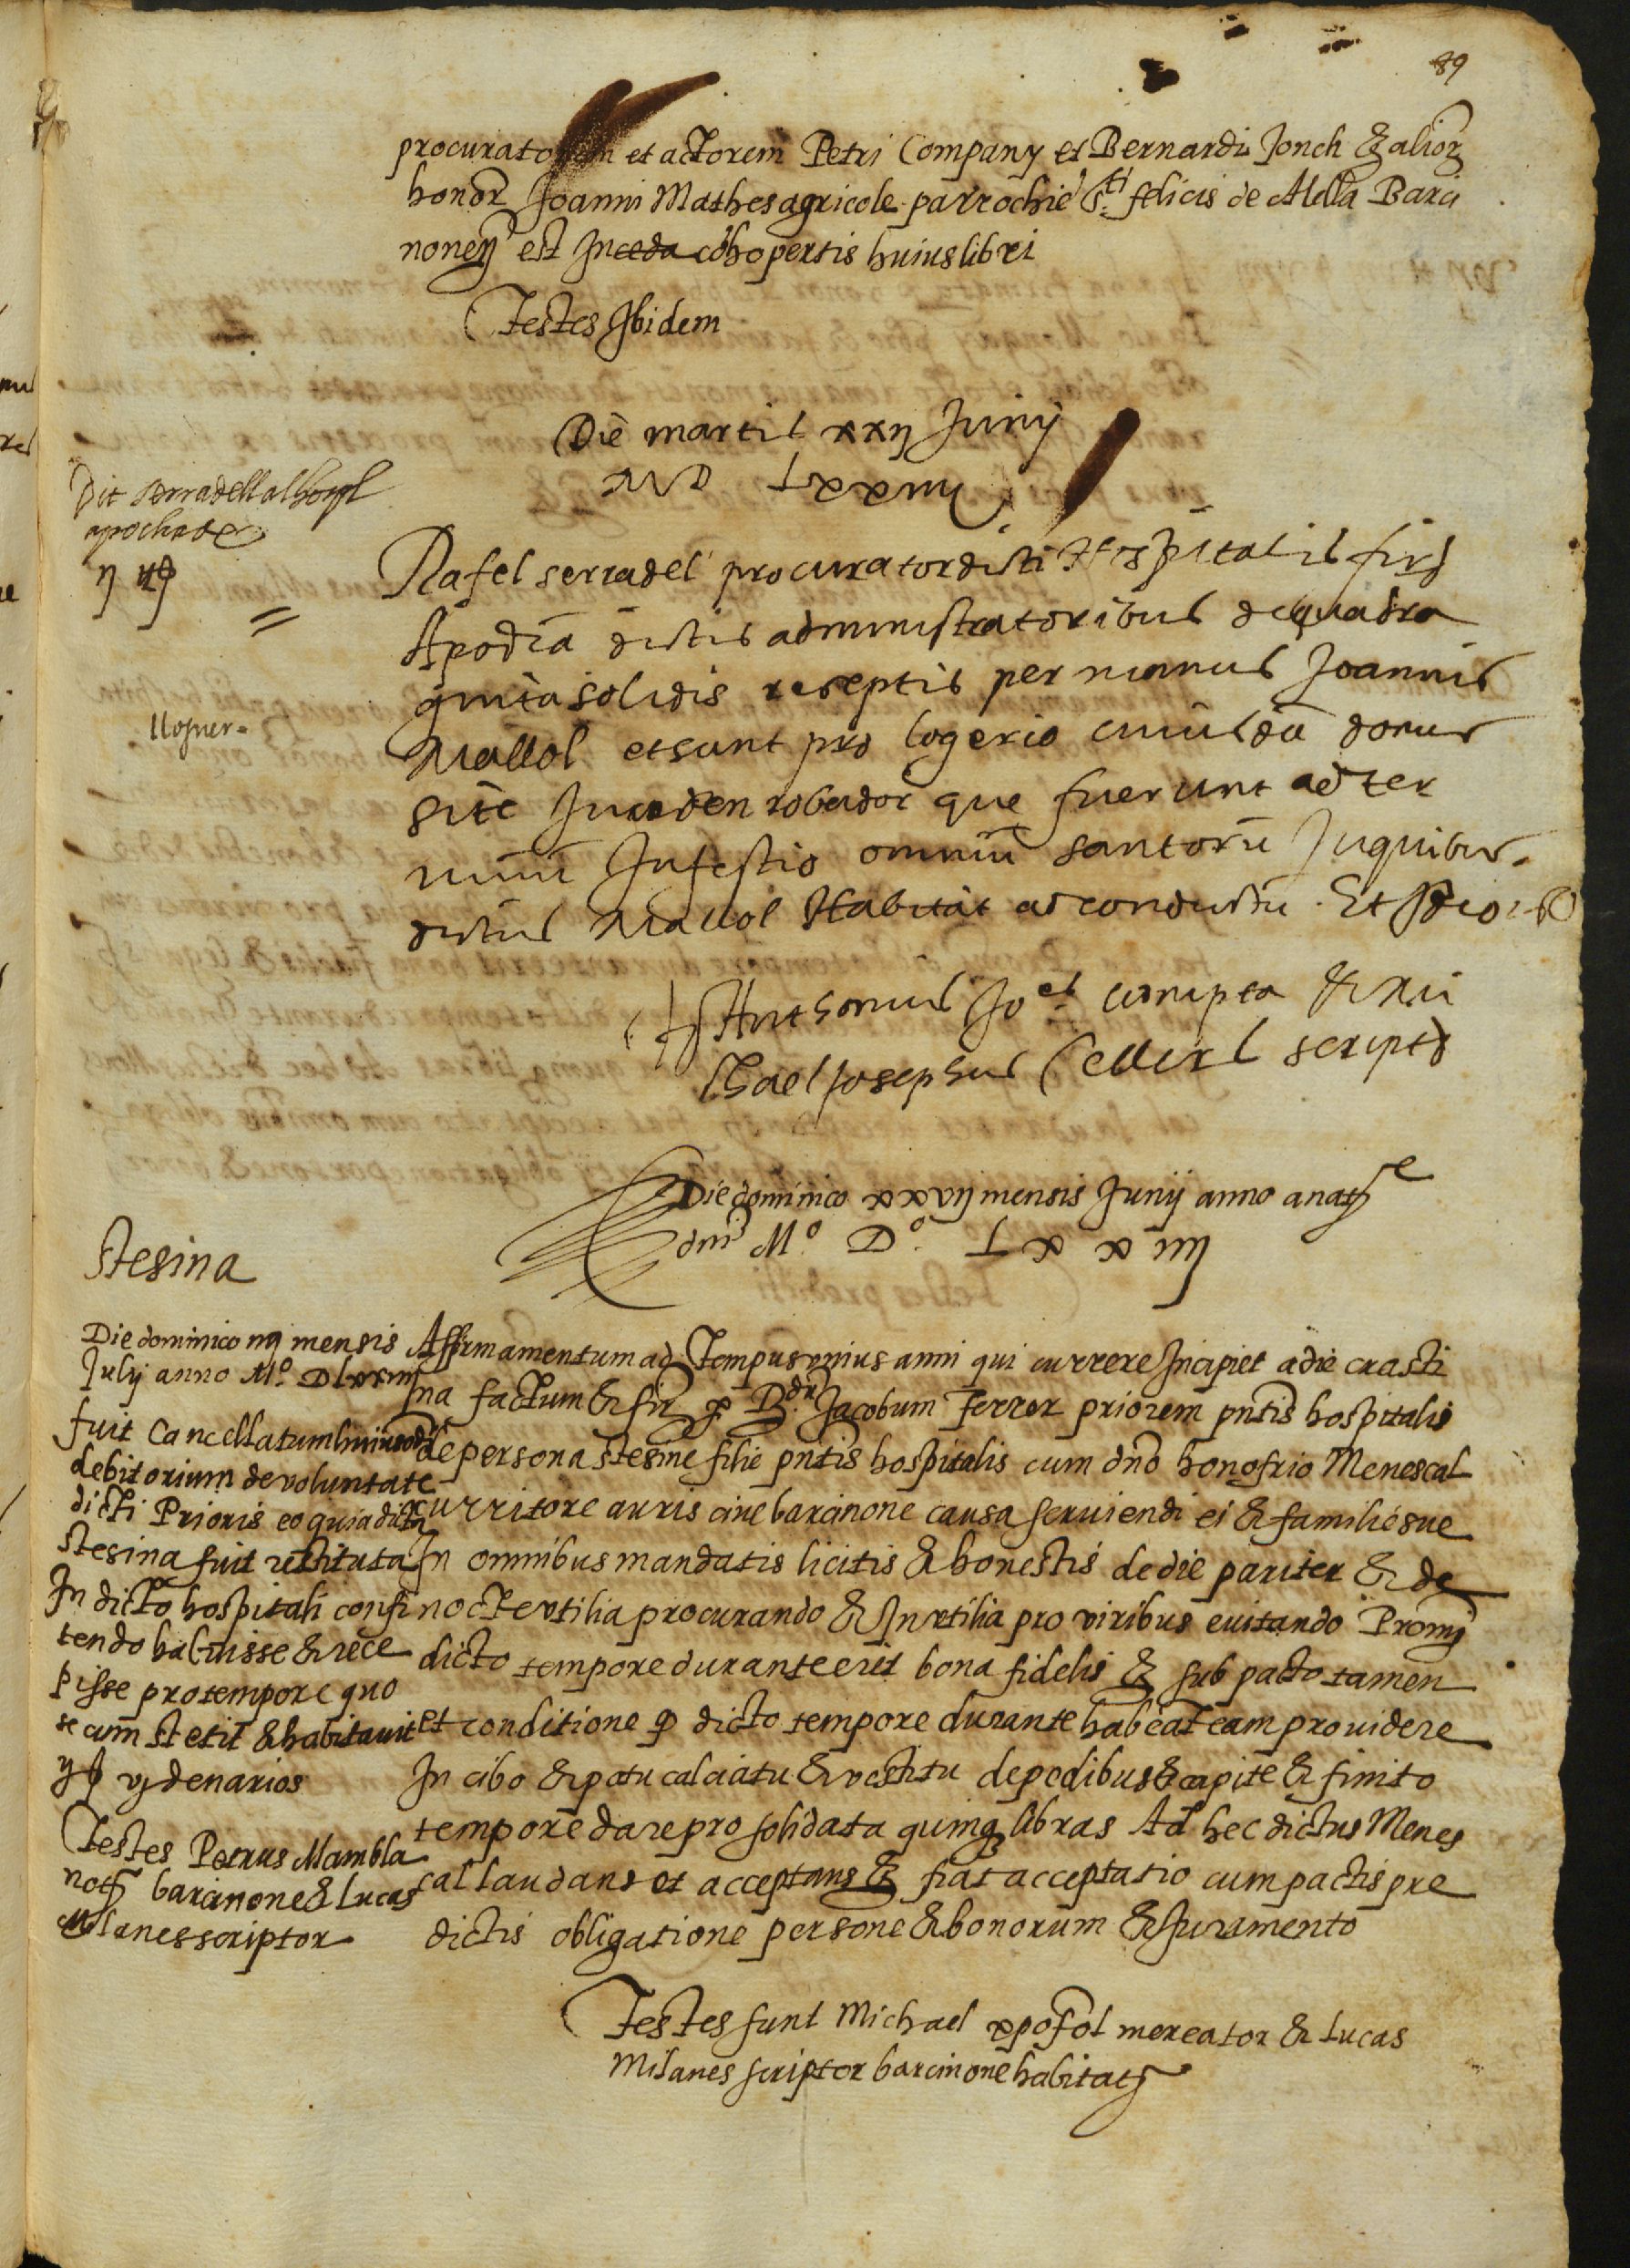 89
procuratorem et actorem Petri Company et Bernardi Jonch & alior
honor Joanni Mathes agricole parrochie Sti felicis de Alella Barci
nonen est In ceda cohopertis huius libri
Testes Ibidem
Die martis xxij Junij
MD Lxxiiij
Dit serradell al hospl
apocha de
ij ₶
Rafel serradel procurator dicti Hospitalis fir
Apocha dictis administratoribus de quadra
ginta solidis reseptis per manus Joannis
lloguer
Mallol et sunt pro logerio cuiusda domus
site In den robador que fuerunt ad ter
minu In festo omniu santoru In quibus
dictus Mallol Habitat ad conductu. Et Ideo
Ts Anthonius Jo compta & Mi
chael Josephus Cellers script
Die dominico xxvij mensis Junij anno a nate
dni Mº Dº Lxxiiij
Stesina
Die dominico iiij mensis
July anno Mº D Lxxiiij
fuit Cancellatum huiusodi
debitorium de voluntate
dicti Prioris eo quia dicta
Stesina fuit restituta
In dicto hospitali confi
tendo habuisse & rece
pisse pro tempore quo
secum stetit & habitavit
ij ß vj denarios
Testes Petrus Mambla
not barcinone & Lucas
Milanes scriptor
Affirmamentum ad Tempus vnius anni qui currere Incipiet a die crasti
na factum & fir p D. Jacobum Ferrer priorem pntis hospitalis
de persona stesine filie pntis hospitalis cum dno honofrio Menescal
curritore auris cive barcinone causa serviendi ei & familie sue
In omnibus mandatis licitis & honestis de die pariter & de
nocte vtilia procurando & Invtilia pro viribus euitando Promj
dicto tempore durante erit bona fidelis & sub pacto tamen
et conditione q dicto tempore durante habeat eam providere
In cibo & potu calciatu & vestitu de pedibus & capite & finito
tempore dare pro solidata quinq libras Ad hec dictus Menes
cal laudans et acceptans & fiat acceptatio cum pactis pre
dictis obligatione persone & bonorum & Juramento
Testes sunt Michael xpofol mercator & Lucas
Milanes scriptor barcinone habitat